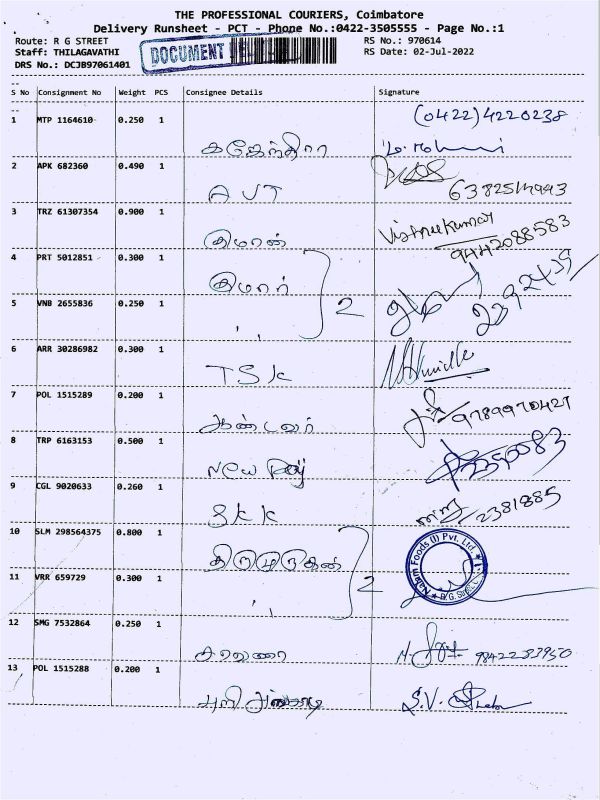 THE PROFESSIONAL COURIERS, Coimbatore
Delivery Runsheet - PCT - Phone No.:0422-3505555 - Page No.:1
Route: R G STREET
RS No.: 970614
Staff: THILAGAVATHI
DOCUMENT
RS Date: 02-Jul-2022
DRS No.: DCJB97061401
S No Consignment No Weight PCS Consignee Details Signature
1 MTP 1164610 0.250 1 கஜேந்திரா (0422)4220238
2 APK 682360 0.490 1 AVT
3 TRZ 61307354 0.900 1 Vishnukumar 9442088583
4 PRT 5012851 0.300 1 குமார் 2
5 VNB 2655836 0.250 1 ,,
6 ARR 30286982 0.300 1 TSK
7 POL 1515289 0.200 1 ஆண்டவர் 9789970427
8 TRP 6163153 0.500 1 New
9 CGL 9020633 0.260 1 SKK 2381885
10 SLM 298564375 0.800 1 திருமுருகன் 2 Nalan Foods (I) Pvt. Ltd. R.G. Street
11 VRR 659729 0.300 1 ,,
12 SMG 7532864 0.250 1
13 POL 1515288 0.200 1 S.V.